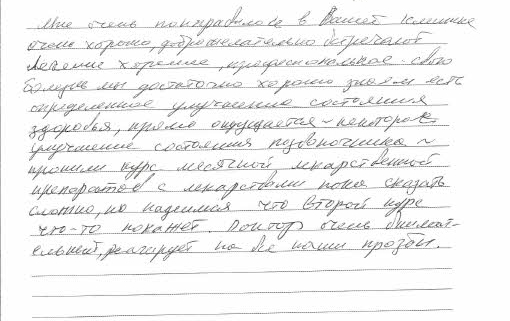 Мне очень понравилось в Вашей клинике
очень хорошо, доброжелательно встречают
Лечение хорошее, профессиональное. свою
болезнь мы достаточно хорошо знаем есть
определенное улучшение состояния
здоровья, прямо ощущается - некоторое
улучшение состояния позвоночника ~
прошли курс месячной лекарственной
препаратов с лекарствами пока сказать
сложно, но надеимся что второй курс
что-то покажет. Доктор очень внимат-
ельный, реагирует на все наши прозбы.